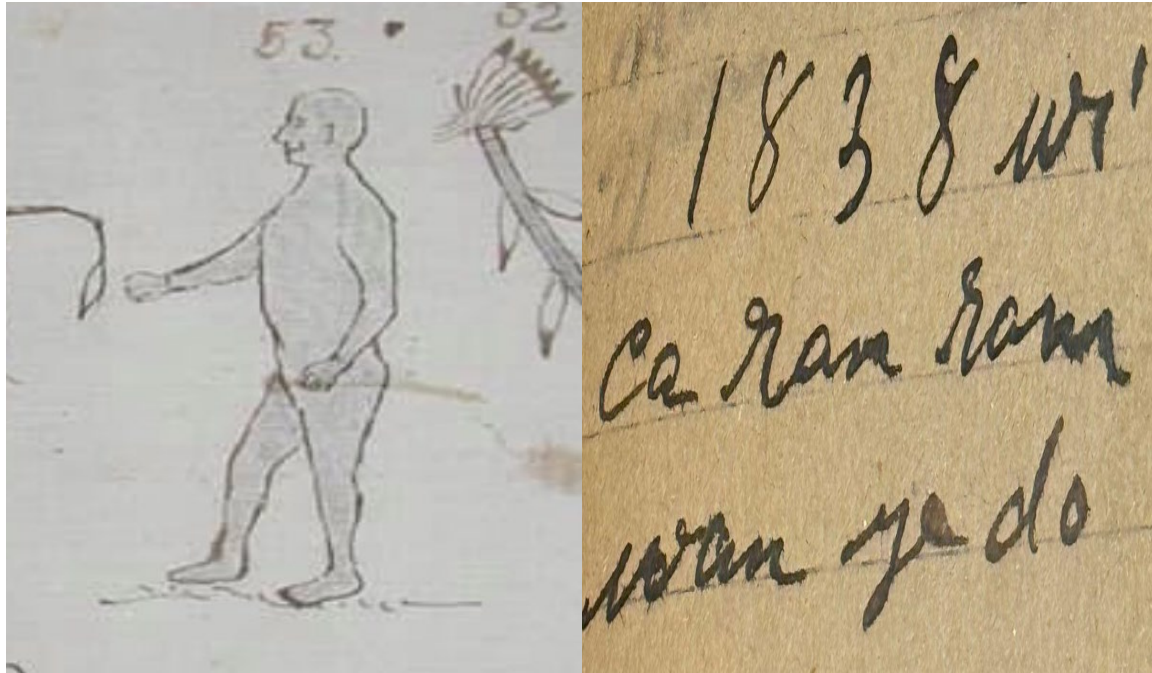 53.
52
1838 wi'
ca ran ram
wan ye do